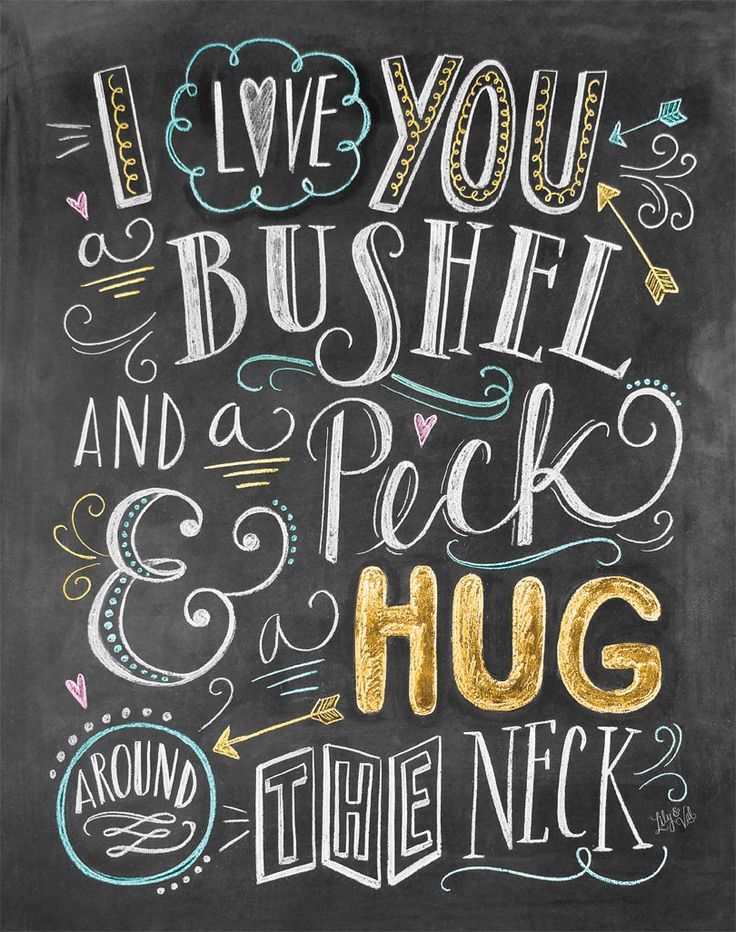 I LOVE YOU
a BUSHEL
AND a Peck
& a HUG
AROUND THE NECK
Lily & Val